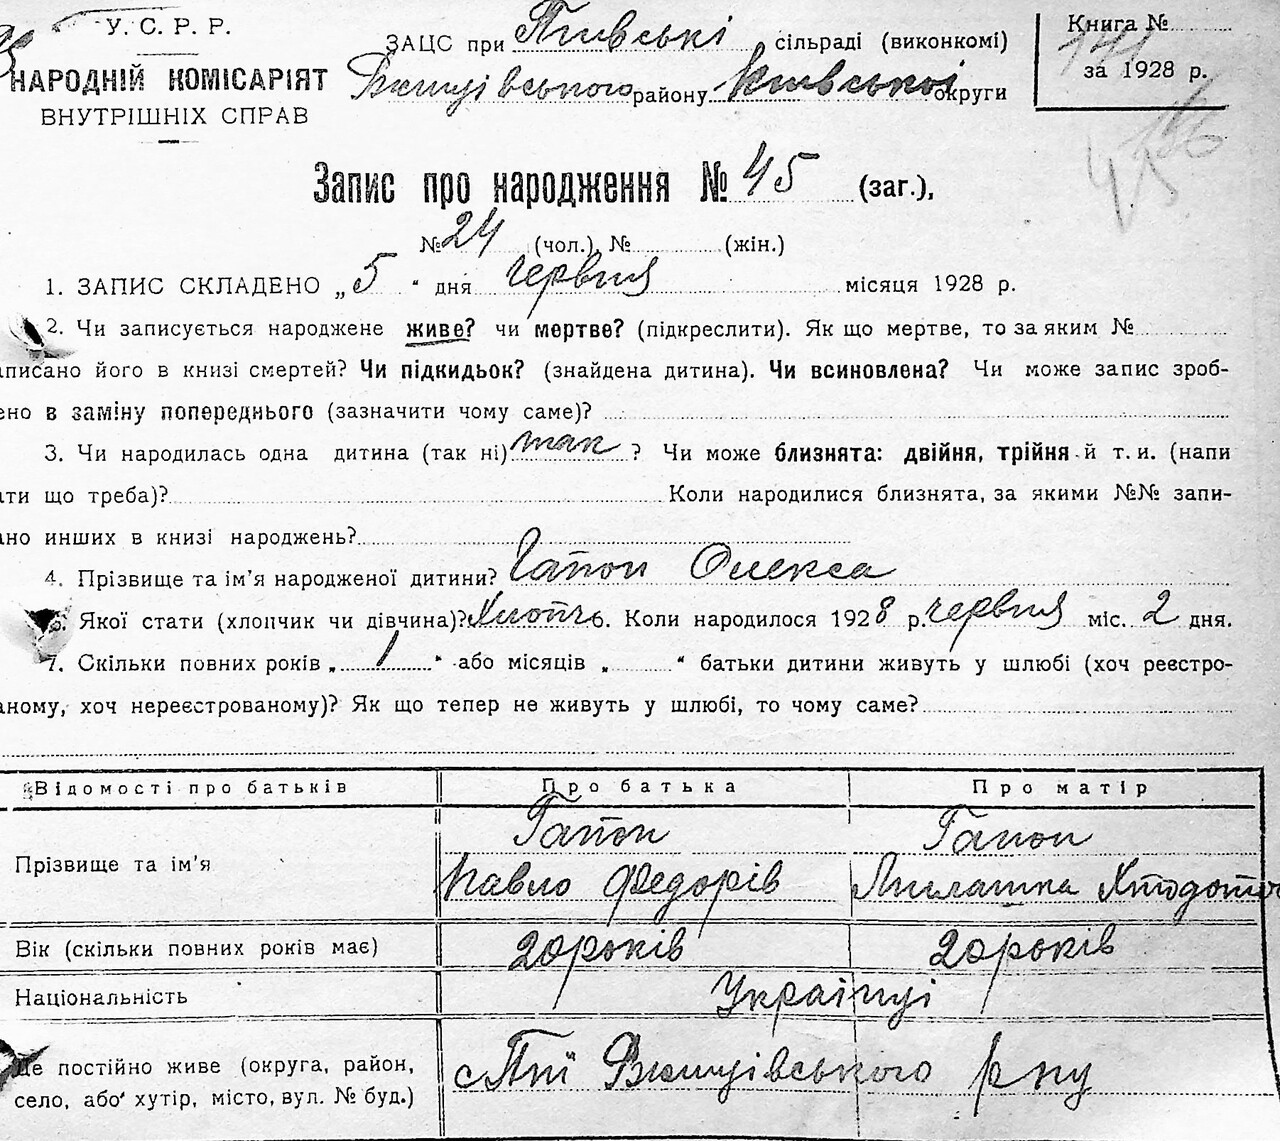 У. С. Р. Р.
НАРОДНІЙ КОМІСАРІЯТ
ВНУТРІШНІХ СПРАВ
ЗАЦС при Пиївські сільраді (виконкомі)
району Київської округи
Книга №
за 1928 р.
Запис про народження № 45 (заг.),
№ 24 (чол.), № (жін.)
1. ЗАПИС СКЛАДЕНО „5“ дня червня місяця 1928 р.
2. Чи записується народжене живе? чи мертве? (підкреслити). Як що мертве, то за яким №
аписано його в книзі смертей? Чи підкидьок? (знайдена дитина). Чи всиновлена? Чи може запис зроб-
ено в заміну попереднього (зазначити чому саме)?
3. Чи народилась одна дитина (так ні) так ? Чи може близнята: двійня, трійня й т. и. (напи
ати що треба)? Коли народилися близнята, за якими №№ запи-
ано инших в книзі народжень?
4. Прізвище та ім’я народженої дитини? Гапон Олекса
Якої стати (хлопчик чи дівчина)? Хлопчь. Коли народилося 1928 р. червня міс. 2 дня.
7. Скільки повних років „1“ або місяців „ “ батьки дитини живуть у шлюбі (хоч реєстро-
аному, хоч нереєстрованому)? Як що тепер не живуть у шлюбі, то чому саме?
Відомості про батьків Про батька Про матір
Гапон Гапон
Прізвище та ім’я
Павло Федорів
Вік (скільки повних років має) 20 років 20 років
Національність Українці
Де постійно живе (округа, район,
село, або хутір, місто, вул. № буд.)
с Пії р ну